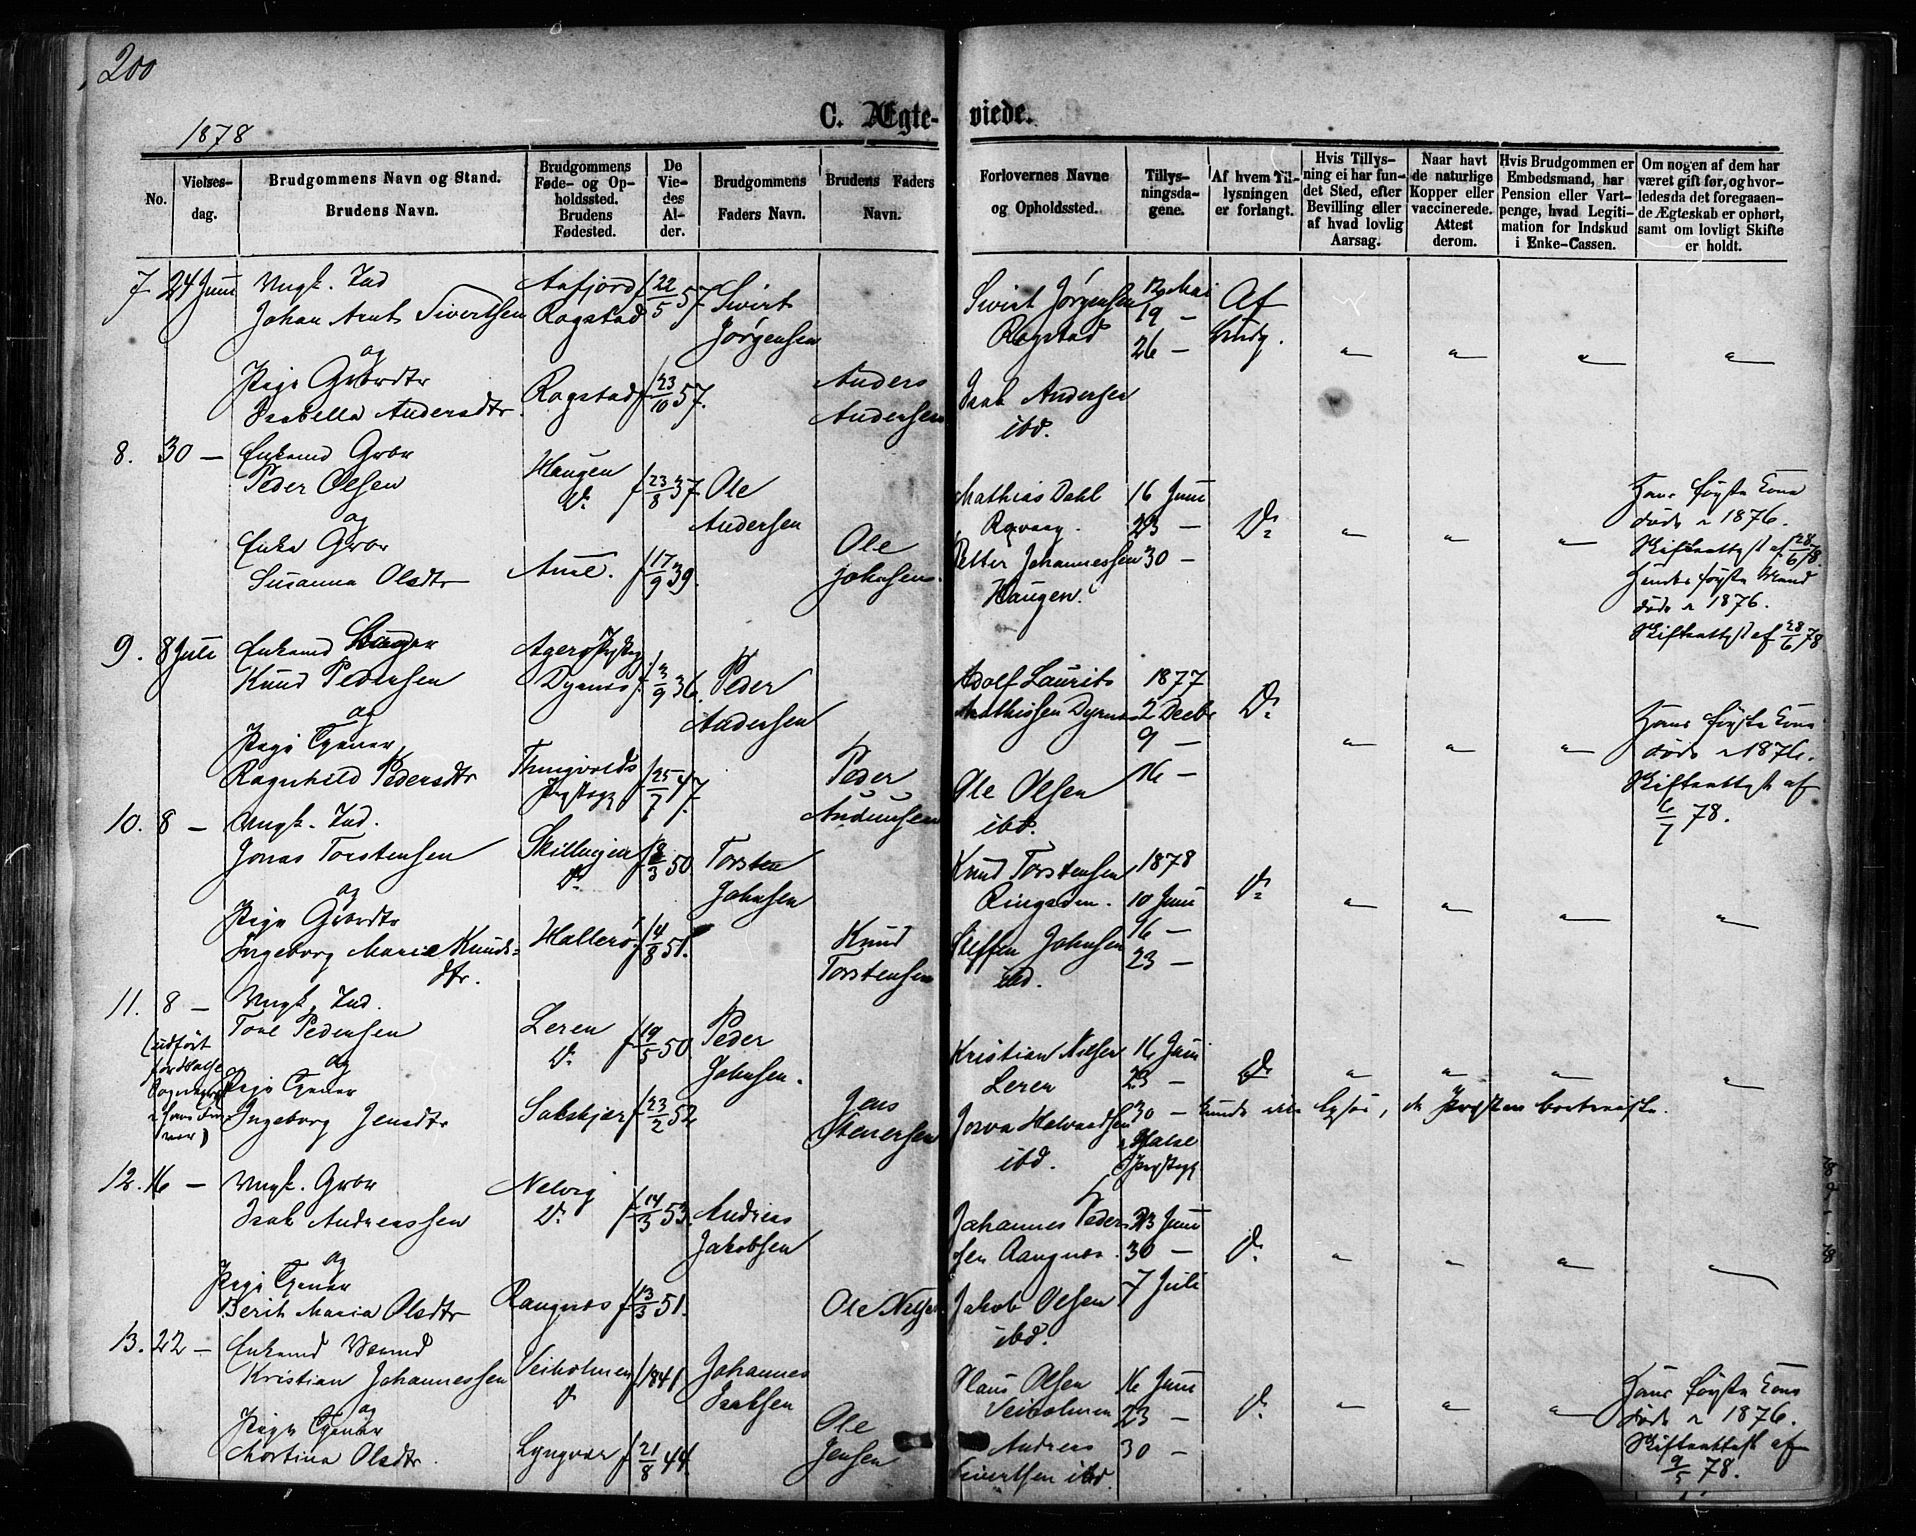 200
1878
C. Ægte-
viede.
No.
Vielses-
dag.
Brudgommens Navn og Stand.
Brudens Navn.
Brudgommens
Føde- og Op-
holdssted.
Brudens
Fødested.
De
Vie-
des
Al-
der.
Brudgommens
Faders Navn.
Brudens Faders
Navn.
Forlovernes Navne
og Opholdssted.
Tillys-
ningsda-
gene.
Af hvem Til-
lysningen
er forlangt.
Hvis Tillys-
ning ei har fun-
det Sted, efter
Bevilling eller
af hvad lovlig
Aarsag.
Naar havt
de naturlige
Kopper eller
vaccinerede.
Attest
derom.
Hvis Brudgommen er
Embedsmand, har
Pension eller Vart-
penge, hvad Legiti-
mation for Indskud
i Enke-Cassen.
Om nogen af dem har
været gift før, og hvor-
ledes da det foregaaen-
de Ægteskab er ophørt,
samt om lovligt Skifte
er holdt.
7 24 Juni Ungk. Ind Aafjord f 22/5 57. Sivert Sivert Jørgensen 12 Mai Af
Johan Arnt Sivertsen Rogstad Jørgensen Rogstad 19 — Brudg.
og 26 — " " " "
Pige Grdbrdtr Rogstad f 23/10 57. Anders Isak Andersen
Isabella Andersdtr. Andersen ibd.
8. 30 — Enkemd Grbr Haugen
Peder Olsen D: f 23/8 37. Ole Mathias Dahl 16 Juni Hans første Kone
og Andersen 23 — D: " " " døde i 1876.
Enke Grbr Aune. f 17/9 39. Ole Petter Johannessen 30 — Skifteattest af 28/6 78.
Susanna Olsdtr Johnsen. Haugen. Hendes første Mand
døde i 1876.
Skifteattest af 28/6 78
9. 8 Juli Enkemd
Knud Pedersen Dyrnes f. 3/9 36. Peder Adolf Laurits 1877
og Andersen Mathissen Dyrnes 2 Decbr D: Hans første Kone
Pige Tjener 9 — " " " døde i 1876.
Ragnhild Pedersdtr Thingvolds f 25/7 47. Peder Ole Olsen 16 — Skifteattest af
Præstegj ibd. 6/7 78.
10. 8 — Ungk. Ind.
Jonas Torstensen D: f 50 Torsten Knud Torstensen 1878
og Johnsen 10 Juni D: " " " "
Pige Grdbrdtr Hallerø f 4/8 51. Knud Steffen Johnsen 16 —
Ingeborg Maria Knuds- Torstensen ibd. 23 —
dtr.
11. 8 — Ungk. Ind.
Tore Pedersen Leren f 19/5 50 Peder Kristian Nilsen 16 Juni
(udført og D: Johnsen. Leren 23 — D: " " " "
for Halse Pige Tjener
Ingeborg Jensdtr f 23/2 52 Jens 30 —
Halse
ibd. Præstegj
12. 16 — Ungk. Grbr Nelvig
Isak Andreassen D: f 14/3 53. Andreas Johannes Peder- 23 Juni
og Jakobsen sen 30 — D: " " " "
Pige Tjener
Berit Maria Olsdtr f 13/3 51. Ole Nilsen Jakob Olsen 7 Juli
ibd.
13. 22 — Enkemd
Kristian Johannessen Veiholmen f 1841 Johannes Klaus Olsen 16 Juni Hans første Kone
og D: Isaksen Veiholmen 23 — D: " " " døde i 1876.
Pige Tjener Ole Andreas 30 — Skifteattest af
Martina Olsdtr. Lyngvær f 21/8 44. Jensen Sivertsen ibd. 9/5 78.